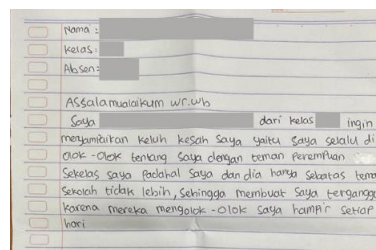 Nama :
Kelas :
Absen :
Assalamualaikum wr.wb
Saya dari kelas ingin
menyampaikan keluh kesah saya yaitu saya selalu di
olok-olok tentang saya dengan teman perempuan
sekelas saya padahal saya dan dia hanya sebatas tema
sekolah tidak lebih, sehingga membuat saya tergangg
karena mereka mengolok-olok saya hampir setiap
hari